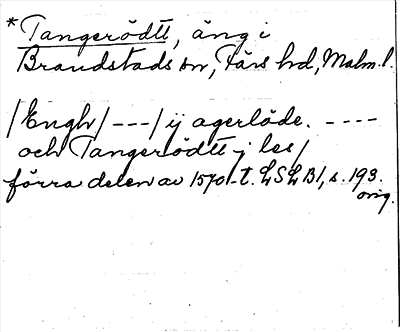 *Tangerödtt, äng i
Brandstads sn, Färs hd, Malm. l.
/Engh/ --- / ij agerlöde. ----
och Tangerödtt j les/
förra delen av 1570-t. LSLB1, s. 193.
orig.